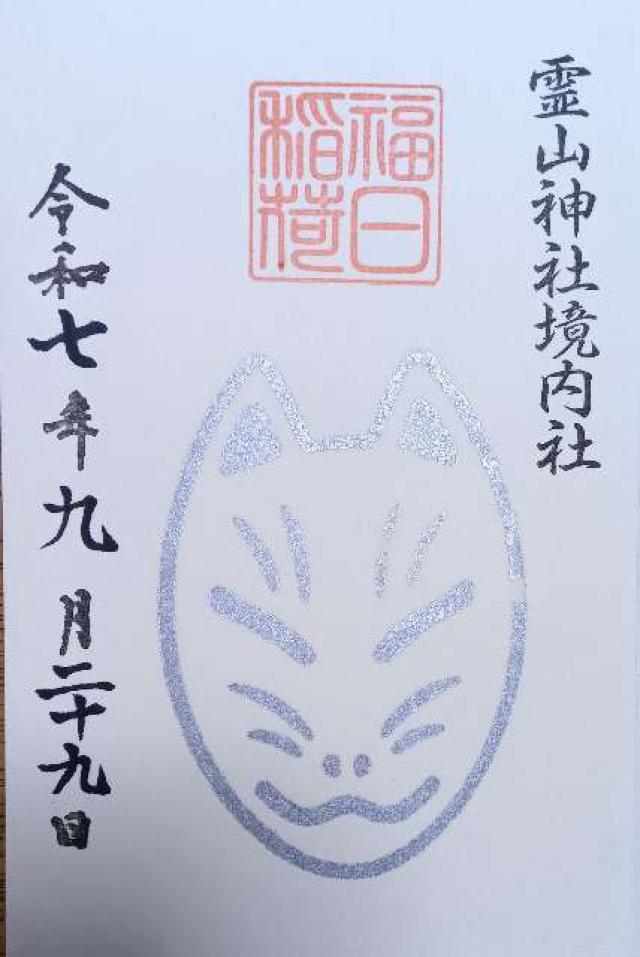 霊山神社境内社
福日
稲荷
令和七年九月二十九日